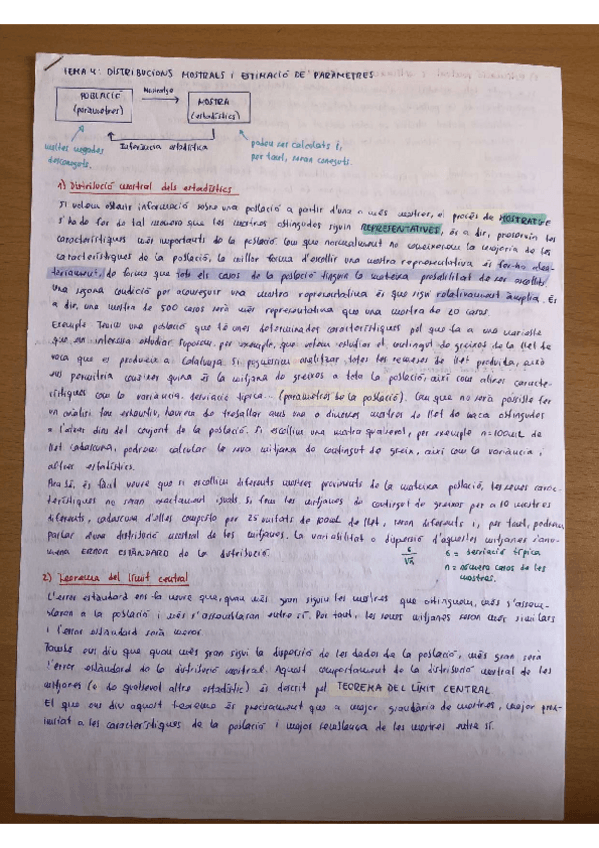 TEMA 4: DISTRIBUCIONS MOSTRALS I ESTIMACIÓ DE PARÀMETRES
POBLACIÓ
(paràmetres)
Mostratge
MOSTRA
(estadístics)
Inferència estadística
moltes vegades
desconeguts.
poden ser calculats i,
per tant, seran coneguts.
1) Distribució mostral dels estadístics
Si volem obtenir informació sobre una població a partir d'una o més mostres, el procés de MOSTRATGE
s'ha de fer de tal manera que les mostres obtingudes siguin REPRESENTATIVES, és a dir, preservin les
característiques més importants de la població. Com que normalment no coneixerem la majoria de les
característiques de la població, la millor forma d'escollir una mostra representativa és fer-ho alea-
tòriament, de forma que tots els casos de la població tinguin la mateixa probabilitat de ser escollits
Una segona condició per aconseguir una mostra representativa és que sigui relativament àmplia. És
a dir, una mostra de 500 casos serà més representativa que una mostra de 20 casos.
Exemple: Tenim una població que té unes determinades característiques pel que fa a una variable
que ens interessa estudiar. Suposem, per exemple, que volem estudiar el contingut de greixos de la llet de
vaca que es produeix a Catalunya. Si poguéssim analitzar totes les remeses de llet produïda, això
ens permetria conèixer quina és la mitjana de greixos a tota la població, així com altres caracte-
rístiques com la variància, desviació típica... (paràmetres de la població). Com que no serà possible fer
un anàlisi tan exhaustiu, haurem de treballar amb una o diverses mostres de llet de vaca obtingudes
a l'atzar dins del conjunt de la població. Si escollim una mostra qualsevol, per exemple n=100mL de
llet cadascuna, podrem calcular la seva mitjana de contingut de greix, així com la variància i
altres estadístics.
Ara bé, és fàcil veure que si escollim diferents mostres provinents de la mateixa població, les seves carac-
terístiques no seran exactament iguals. Si fem les mitjanes de contingut de greixos per a 10 mostres
diferents, cadascuna d'elles composta per 25 unitats de 100mL de llet, seran diferents i, per tant, podrem
parlar d'una distribució mostral de les mitjanes. La variabilitat o dispersió d'aquestes mitjanes s'ano-
mena ERROR ESTÀNDARD de la distribució.
s/√n
s = desviació típica
n = número casos de les
mostres.
2) Teorema del límit central
L'error estàndard ens fa veure que, quan més gran siguin les mostres que obtinguem, més s'assem-
blaran a la població i més s'assemblaran entre sí. Per tant, les seves mitjanes seran més similars
i l'error estàndard serà menor.
També ens diu que quan més gran sigui la dispersió de les dades de la població, més gran serà
l'error estàndard de la distribució mostral. Aquest comportament de la distribució mostral de les
mitjanes (o de qualsevol altre estadístic) és descrit pel TEOREMA DEL LÍMIT CENTRAL
El que ens diu aquest teorema és precisament que a major grandària de mostres, major prox-
imitat a les característiques de la població i major semblança de les mostres entre sí.